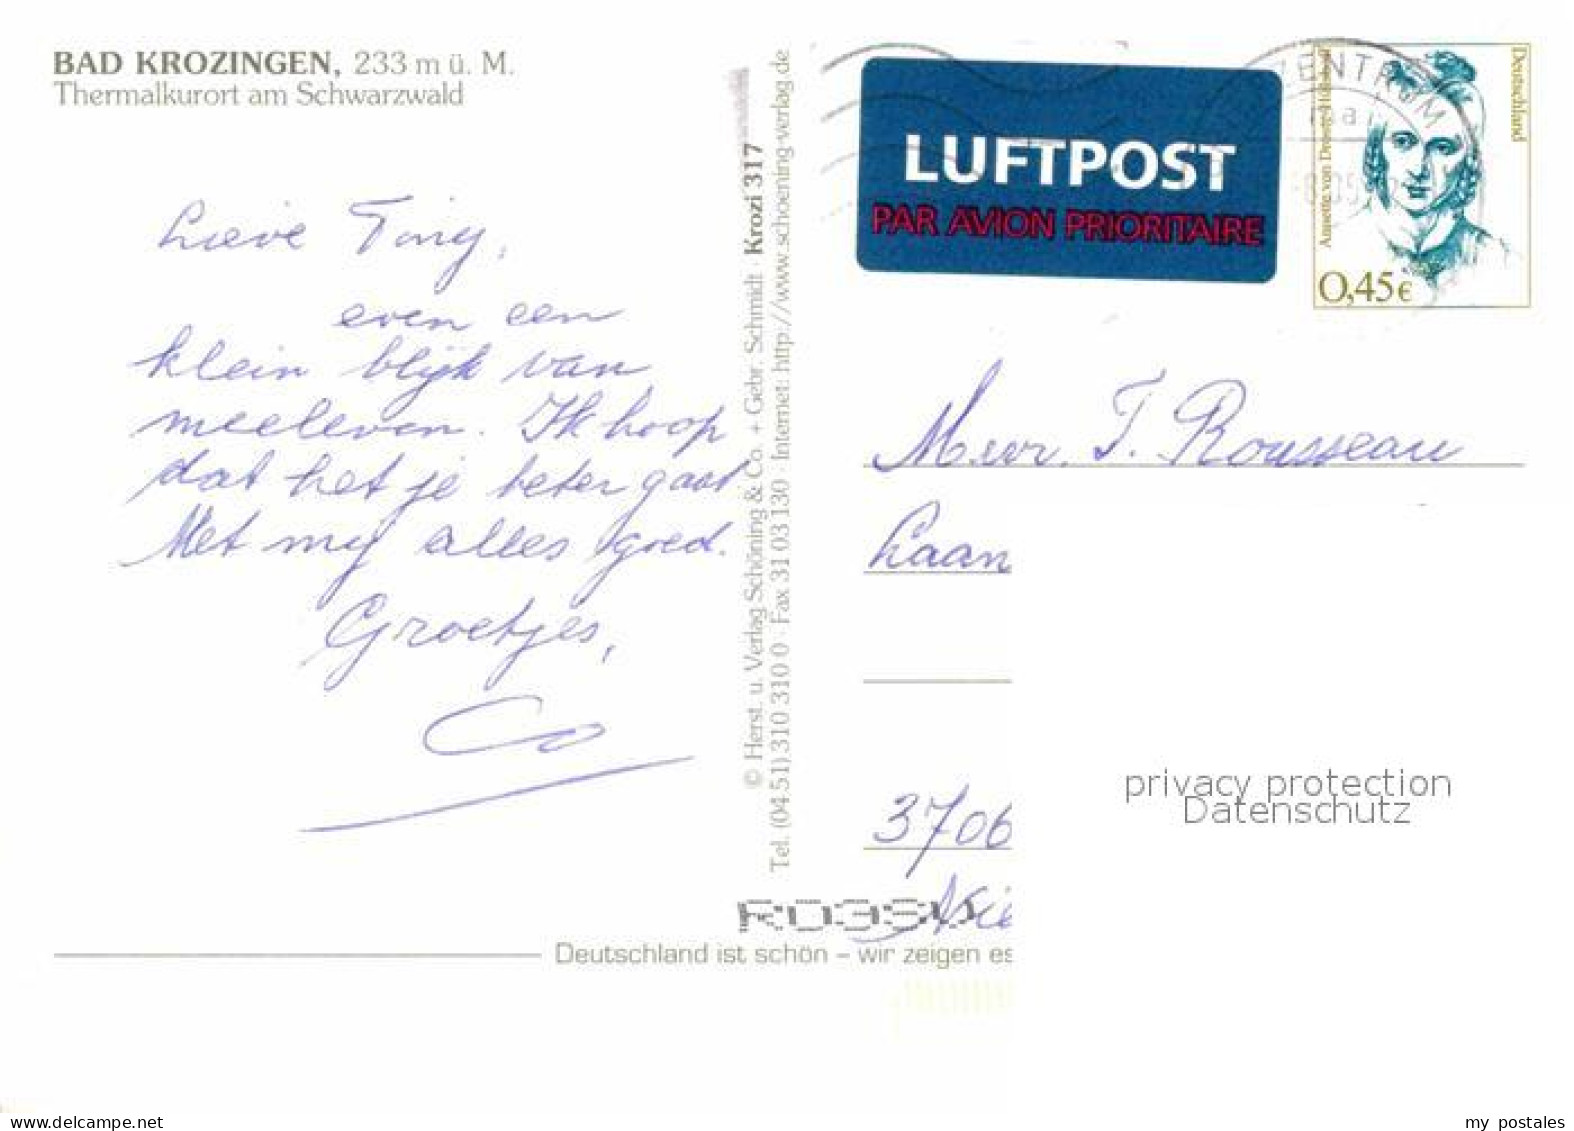 BAD KROZINGEN, 233 m ü. M.
Thermalkurort am Schwarzwald
Lieve Tiny,
even een
klein blijk van
meeleven. Ik hoop
dat het je beter gaat.
Met mij alles goed.
Groetjes,
Co
© Herst. u. Verlag Schöning & Co. + Gebr. Schmidt · Krozi 317
Tel. (04 51) 310 310 0 · Fax 31 03 130 · Internet: http://www.schoening-verlag.de
LUFTPOST
PAR AVION PRIORITAIRE
ZENTRUM
Deutschland
Annette von Droste-Hülshoff
0,45 €
Mevr. T. Rousseau
Laan
3706
Nie
privacy protection
Datenschutz
Deutschland ist schön – wir zeigen es
delcampe.net
my postales